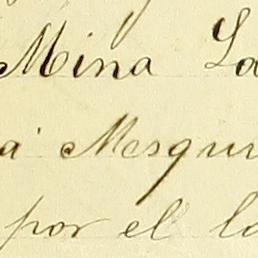 Mina La
a Mesqui
por el la